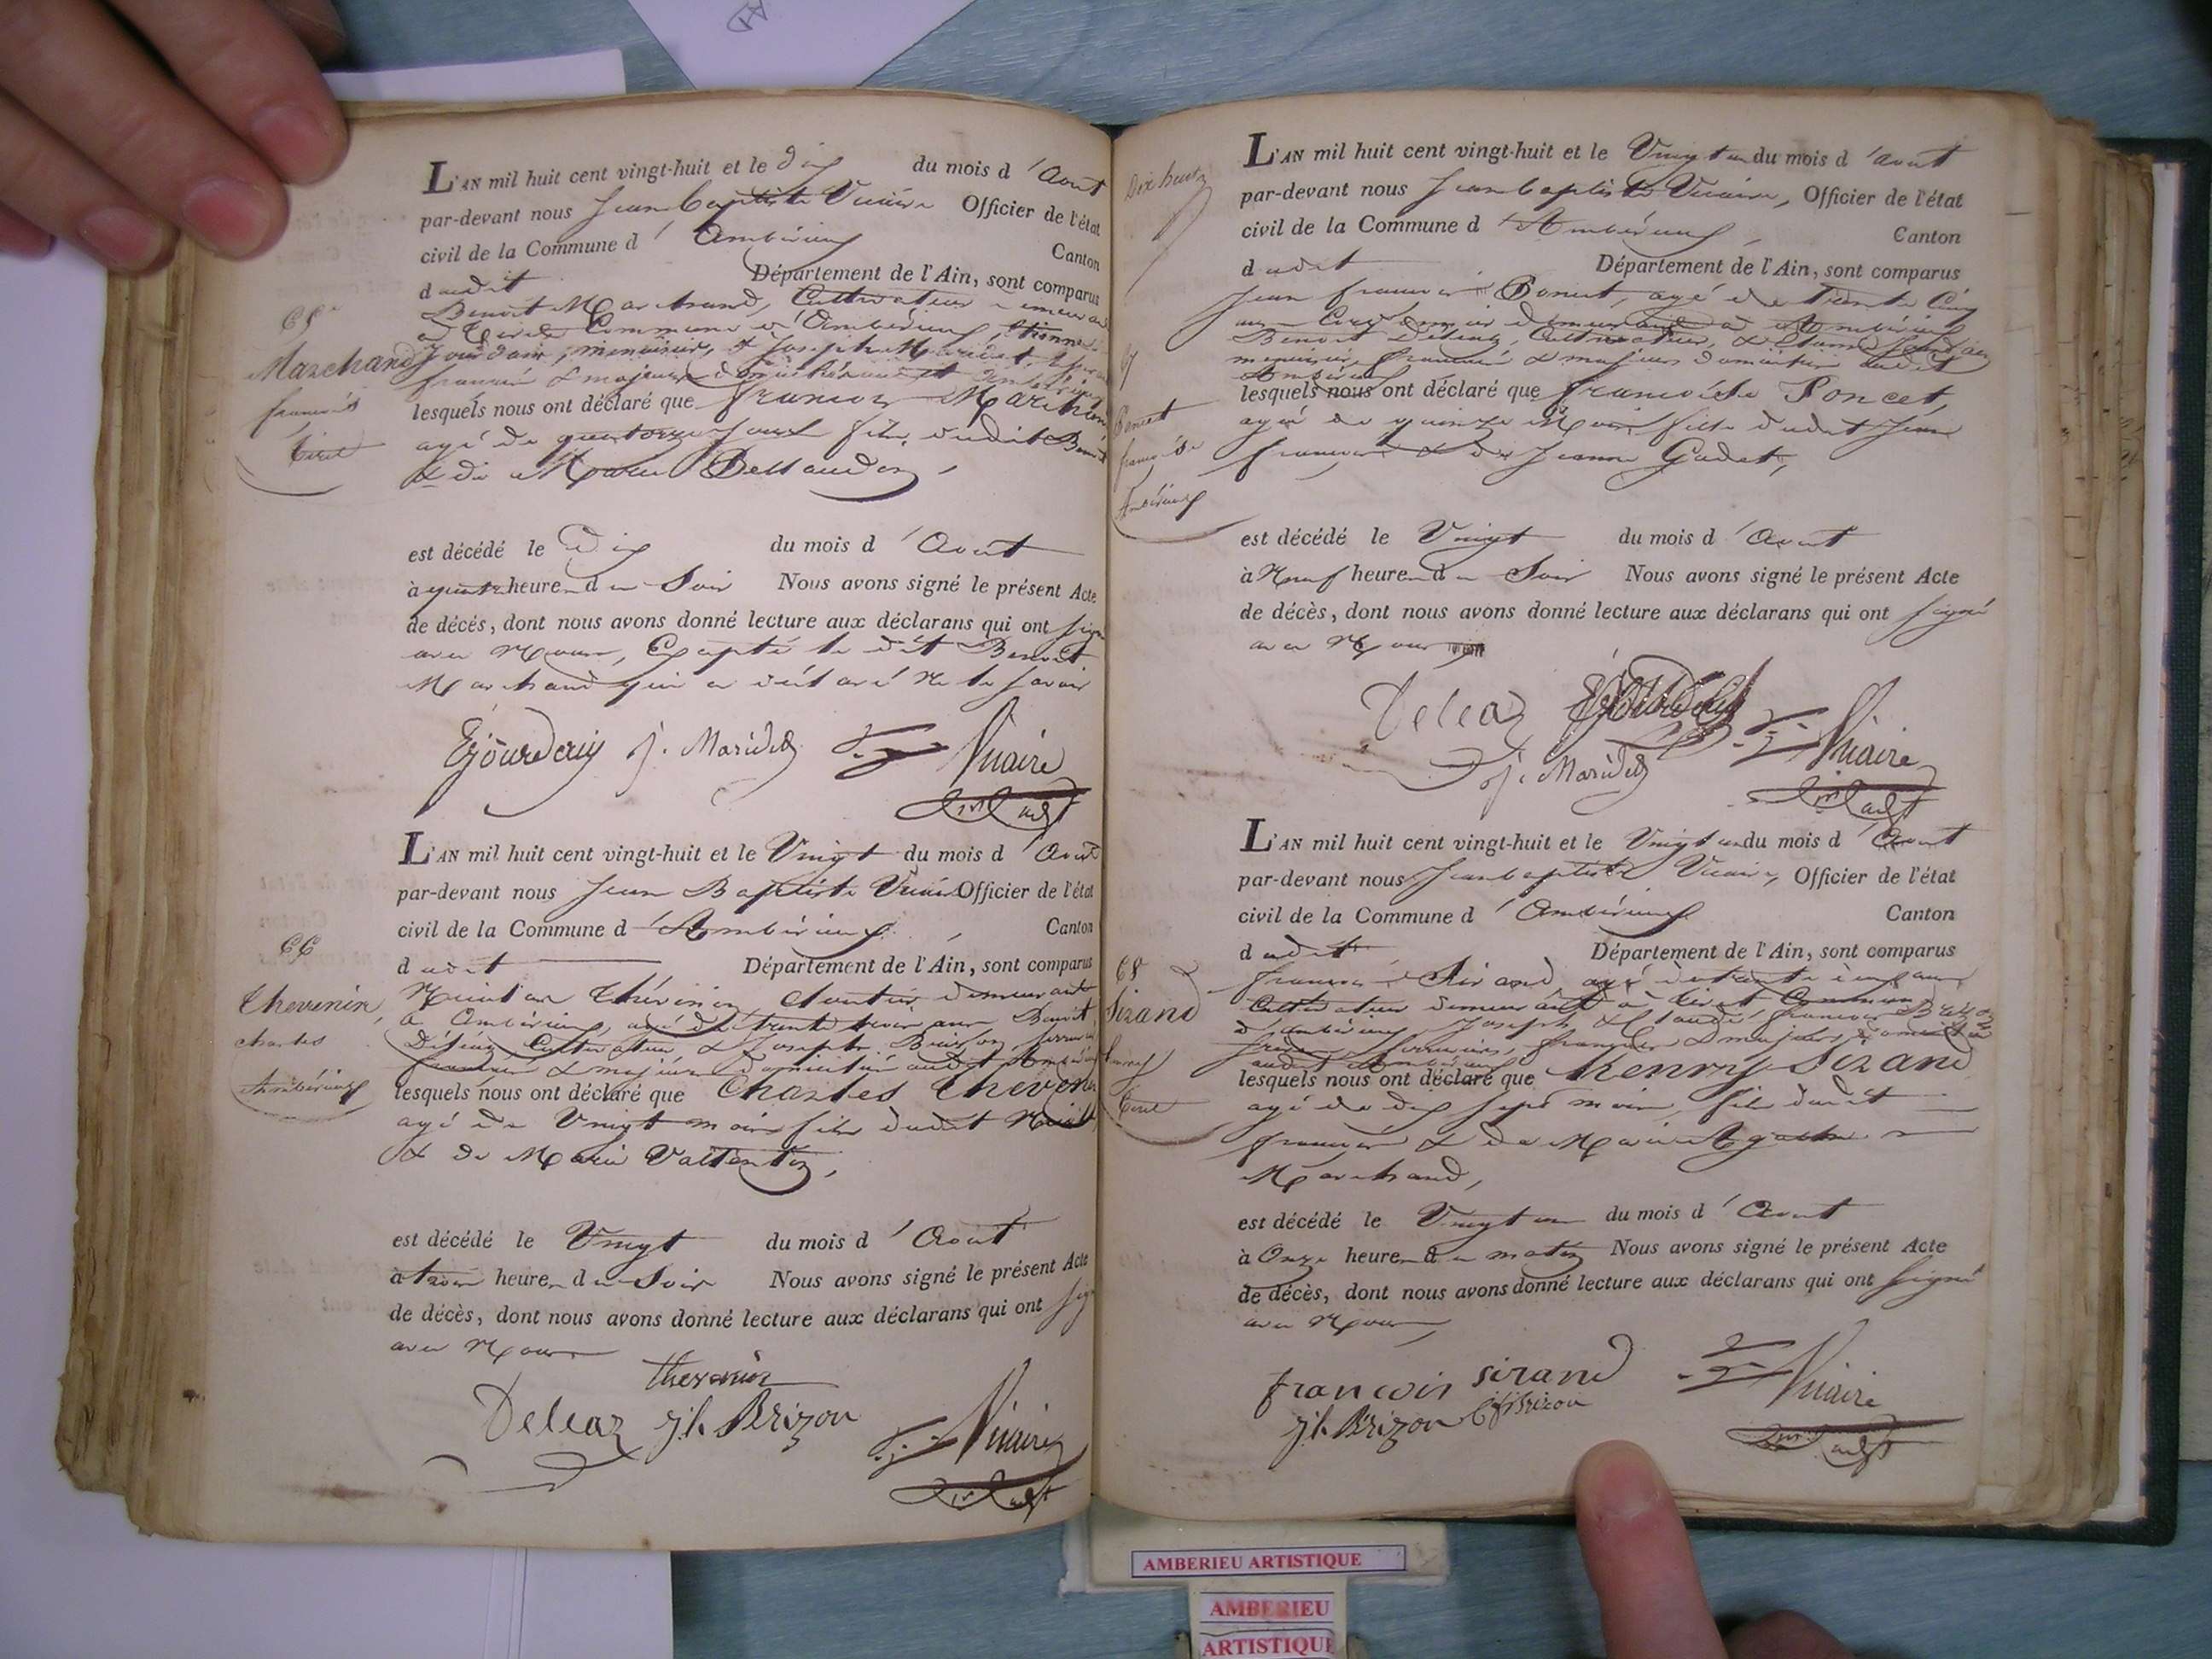 L'AN mil huit cent vingt-huit et le dix du mois d'Aout
par-devant nous Jean Baptiste Vicaire Officier de l'état
civil de la Commune d'Ambérieux Canton
dudit Département de l'Ain, sont comparus
Benoit Marchand, Cultivateur demeurant
à Tiret Commune d'Ambérieux, Etienne
Jourdain, menuisier, & Joseph Maridet
français & majeurs
lesquels nous ont déclaré que françois Marchand
agé de quatorze jours fils dudit Benoit
& de Marie Bellaudon,
est décédé le Dix du mois d'Aout
à quatre heures du Soir Nous avons signé le présent Acte
de décés, dont nous avons donné lecture aux déclarans qui ont signé
avec Nous, Excepté le dit Benoit
Marchand qui a déclaré ne le savoir
Ejourdain j. Maridet Vicaire
65
Marchand
françois
Tiret
L'AN mil huit cent vingt-huit et le Vingt du mois d'Aout
par-devant nous Jean Baptiste Vicaire Officier de l'état
civil de la Commune d'Ambérieux, Canton
dudit Département de l'Ain, sont comparus
Thévenin, demeurant
à Ambérieux, agé de trente trois ans Benoit
Deleaz, Cultivateur, & Joseph Brizon, serrurier
français & majeurs domiciliés audit Ambérieux
lesquels nous ont déclaré que Charles Thevenin
agé de Vingt mois fils dudit
& de Marie Vallentin,
est décédé le Vingt du mois d'Aout
à trois heures du Soir Nous avons signé le présent Acte
de décès, dont nous avons donné lecture aux déclarans qui ont signé
avec Nous
thevenin
Deleaz jh. Brizon Vicaire
66
Thevenin,
charles
Ambérieux
Dix huit
L'AN mil huit cent vingt-huit et le Vingt un du mois d'aout
par-devant nous Jean baptiste Vicaire, Officier de l'état
civil de la Commune d'Ambérieux, Canton
dudit Département de l'Ain, sont comparus
Jean françois Poncet, agé de Trente Cinq
ans Cordonnier demeurant à Ambérieux
Benoit Deleaz, Cultivateur, & Etienne Jourdain
menuisier, français & majeurs domiciliés audit
Ambérieux
lesquels nous ont déclaré que françoise Poncet,
agée de quinze Mois fille dudit Jean
françois & de Jeanne Gadet,
est décédé le Vingt du mois d'Aout
à Neuf heures du Soir Nous avons signé le présent Acte
de décès, dont nous avons donné lecture aux déclarans qui ont signé
avec Nous
Deleaz Ejourdain Vicaire
j. Maridet
Poncet
françoise
Ambérieux
L'AN mil huit cent vingt-huit et le Vingt un du mois d'Aout
par-devant nous Jean baptiste Vicaire, Officier de l'état
civil de la Commune d'Ambérieux Canton
dudit Département de l'Ain, sont comparus
françois Sirand agé de trente cinq ans
Cultivateur demeurant à Tiret Commune
d'Ambérieux, Joseph & Claude françois Brizon
frères serruriers, français & majeurs, domiciliés
audit Ambérieux
lesquels nous ont déclaré que henry Sirand
agé de dix sept mois, fils dudit
françois & de Marie Agathe
Marchand,
est décédé le Vingt un du mois d'Aout
à Onze heures du matin Nous avons signé le présent Acte
de décès, dont nous avons donné lecture aux déclarans qui ont signé
avec Nous
francois sirand Vicaire
jh. Brizon cfBrizon
68
Sirand
henry
Tiret
AMBERIEU ARTISTIQUE
AMBERIEU
ARTISTIQUE